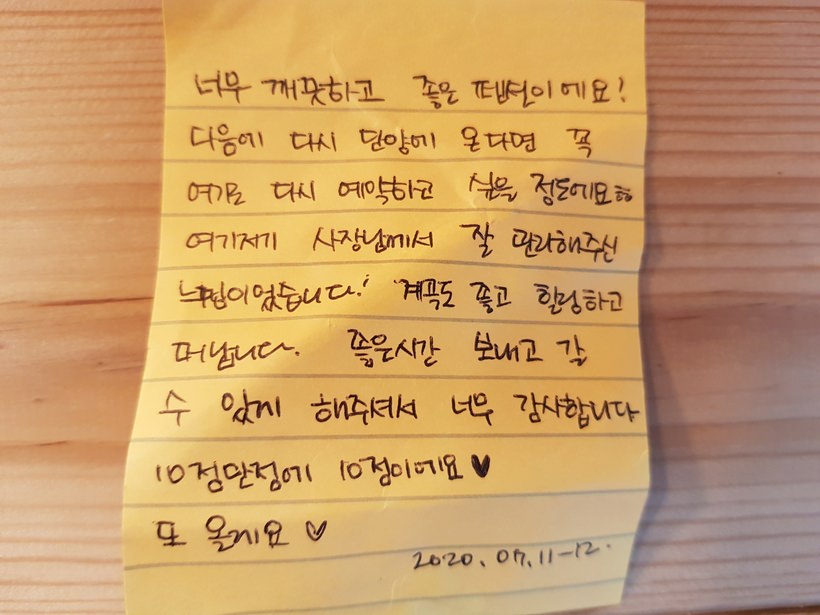 너무 깨끗하고 좋은 펜션이에요!
다음에 다시 단양에 온다면 꼭
여기로 다시 예약하고 싶을 정도에요ㅎㅎ
여기저기 사장님께서 잘 관리해주신
느낌이었습니다! 계곡도 좋고 힐링하고
떠납니다. 좋은시간 보내고 갈
수 있게 해주셔서 너무 감사합니다
10점만점에 10점이에요♥
또 올게요♡
2020.07.11-12.